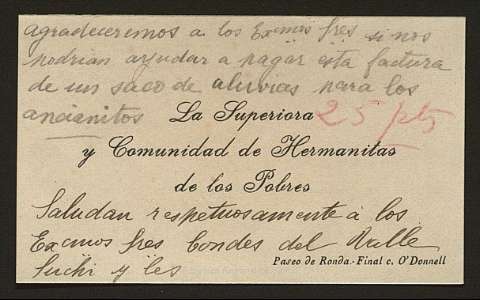 agradeceremos a los Excmos Sres si nos
podrian ayudar a pagar esta factura
de un saco de aluvias para los
ancianitos
La Superiora 25 pts
y Comunidad de Hermanitas
de los Pobres
Saludan respetuosamente á los
Excmos Sres Condes del Valle
Suchi y les
Paseo de Ronda.-Final c. O'Donnell